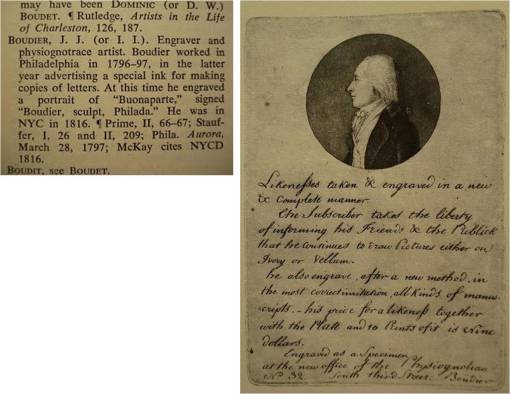 may have been DOMINIC (or D. W.)
BOUDET. ¶ Rutledge, Artists in the Life
of Charleston, 126, 187.
BOUDIER, J. J. (or I. I.). Engraver and
physiognotrace artist. Boudier worked in
Philadelphia in 1796-97, in the latter
year advertising a special ink for making
copies of letters. At this time he engraved
a portrait of "Buonaparte," signed
"Boudier, sculpt, Philada." He was in
NYC in 1816. ¶ Prime, II, 66-67; Stauf-
fer, I, 26 and II, 209; Phila. Aurora,
March 28, 1797; McKay cites NYCD
1816.
BOUDIT, see BOUDET.
Likenesses taken & engraved in a new
& complete manner.
the Subscriber takes the liberty
of informing his Friends & the Publick
that he continues to draw Pictures either on
Ivory or Vellum.
he also engrave, after a new method, in
the most correct imitation, all Kinds of manus
cripts. - his price for a likeness together
with the Plate and 10 Prints of it is Nine
dollars.
Engraved as a Specimen
at the new office of the Physiognotrace
No. 32. South third Street.